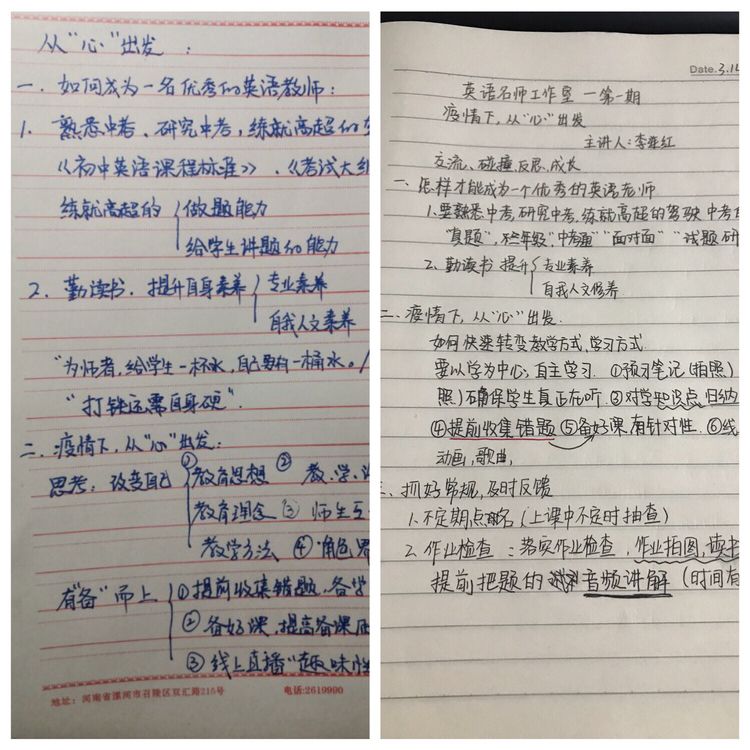 从“心”出发：
一．如何成为一名优秀的英语教师：
1．熟悉中考、研究中考，练就高超的
《初中英语课程标准》、《考试大纲
练就高超的 做题能力
给学生讲题的能力
2．勤读书．提升自身素养 专业素养
自我人文素养
“为师者，给学生一杯水，自己要有一桶水。
“打铁还需自身硬”．
二．疫情下，从“心”出发：
思考：改变自己 ①教育思想 ② 教、学、
教育理念 ③ 师生互
教学方法 ④“角色界
有“备”而上 ①提前收集错题、备学
②备好课，提高备课
③线上直播“趣味性
地址：河南省漯河市召陵区双汇路215号 电话:2619990
Date. 3.14
英语名师工作室 一第一期
疫情下，从“心”出发
主讲人：李
交流、碰撞、反思、成长
一、怎样才能成为一个优秀的英语老师
1.要熟悉中考，研究中考，练就高超的驾驶 中考的
“真题”， “中考通”“面对面”“试题研
2.勤读书 提升 专业素养
自我人文修养
二、疫情下，从“心”出发．
如何快速转变教学方式，学习方式．
要以学为中心，自主学习．①预习笔记（拍照）
照）确保学生真正在听．③对学知识点，归纳
④提前收集错题 ⑤备好课，有针对性．⑥线
动画，歌曲，
三、抓好常规，及时反馈
1.不定期点名（上课中不定时抽查）
2.作业检查：落实作业检查，作业拍图，读书
提前把题的 音频讲解（时间有